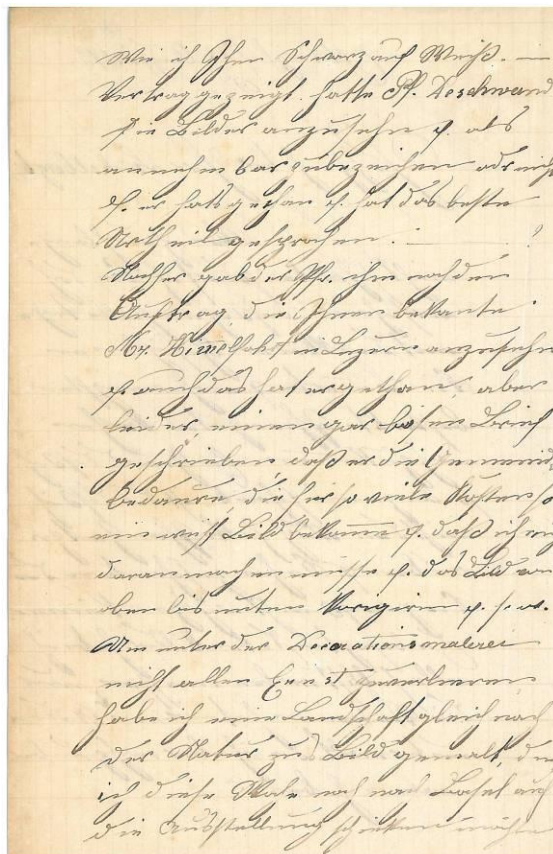 Wie ich Ihnen Schwarz auf Weiß. —
Vertrag gezeigt, hatte Pf. Deschwand
die Bilder anzusehn u. als
annehmbar zubezeichen odr nich
u. er hats gethan u. hat das beste
Urtheil gesprochen. — !
Nachher gab der Pfr. ihm noch den
Auftrag die Ihnen bekante
in Luzern anzusehn
u. auch das hat er gethan, aber
leider, einen gar bösen Brief
geschrieben, daß er die Gemeind
bedaure, die für so viele Kosten so
ein Bild bekomme u. daß ich
daran machen müsse u. das Bild von
oben bis unten korigiren u. s. w.
Um unter der Decorationsmalerei
nicht allen Ernst zuverlieren
habe ich eine Landschaft gleich nach
der Natur zu Bild gemalt, die
ich diese Woche noch nach Basel auf
die Ausstellung schicken möchte